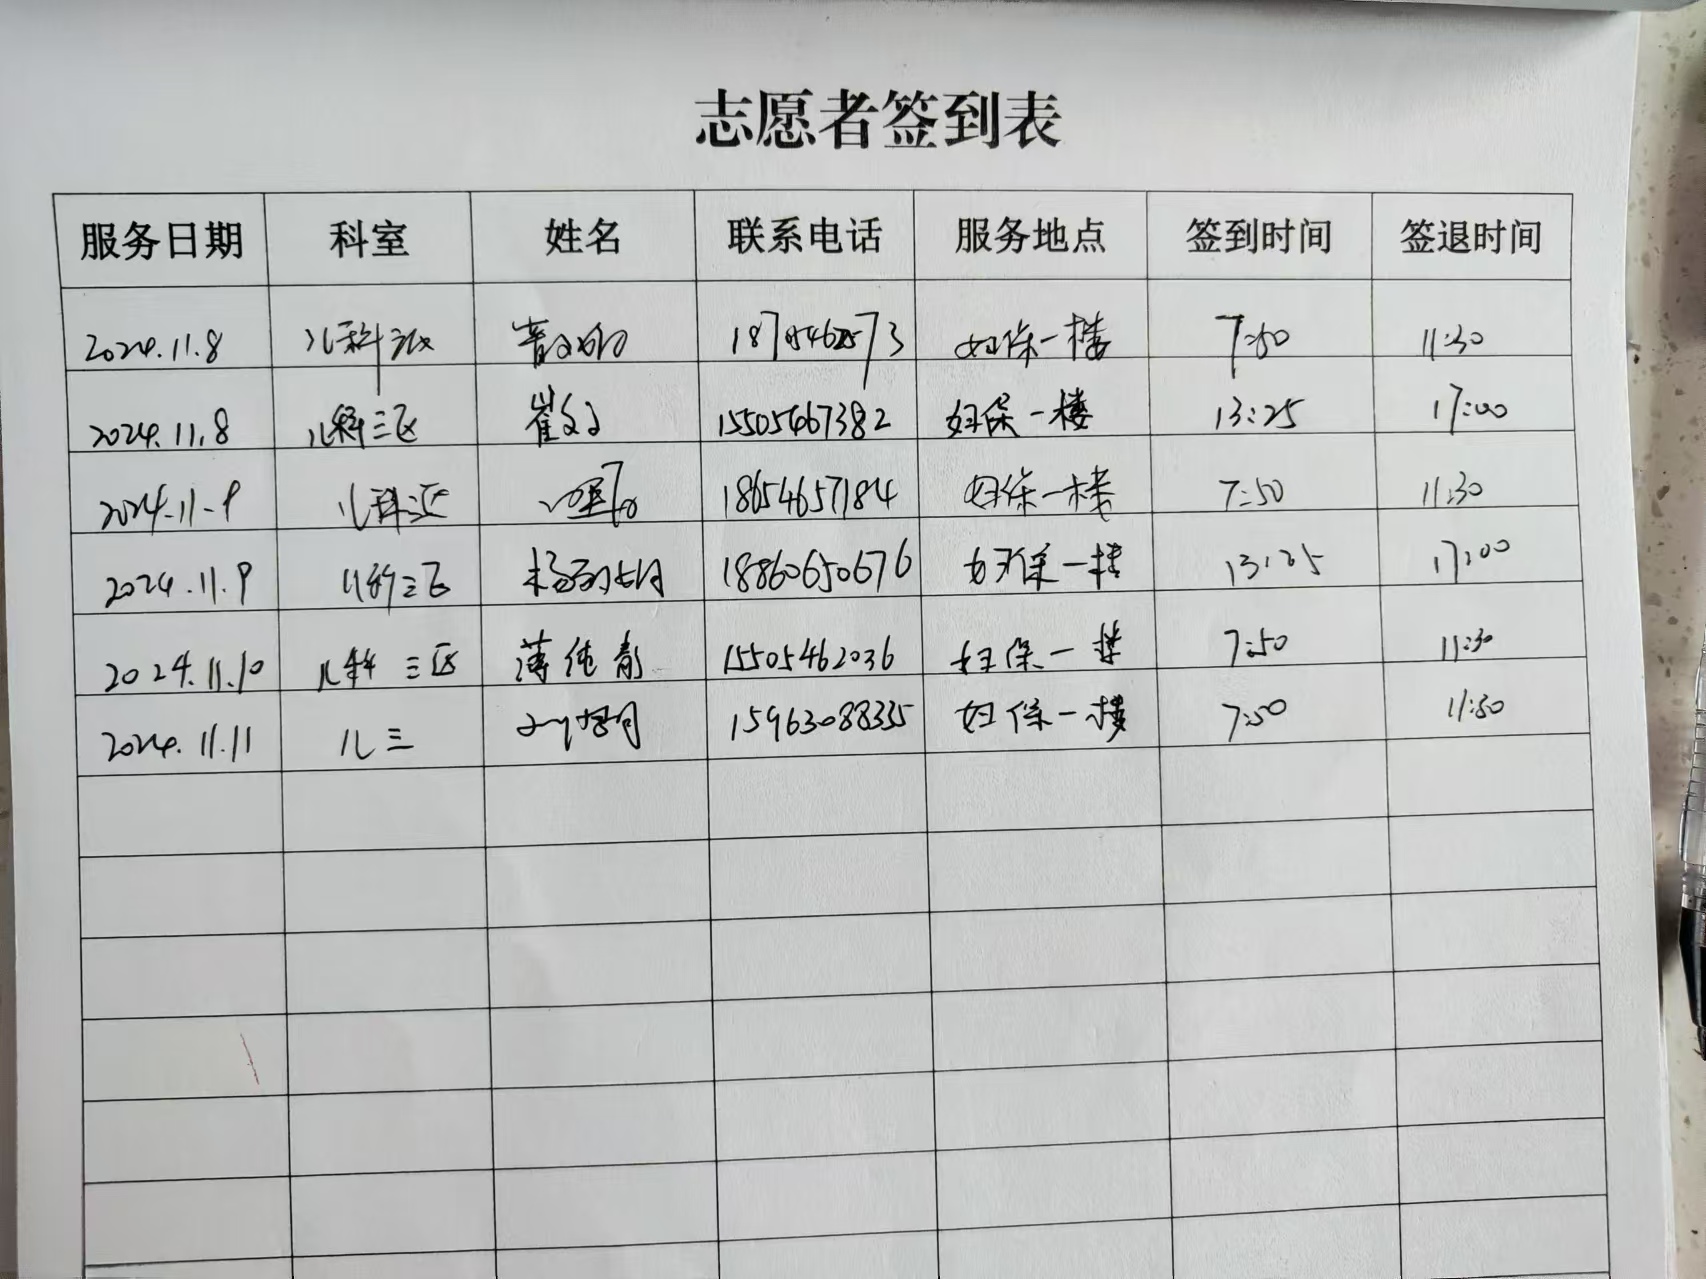 志愿者签到表
服务日期 科室 姓名 联系电话 服务地点 签到时间 签退时间
2024.11.8 儿科三区 妇保一楼 7:50 11:30
2024.11.8 儿科三区 崔文 15505467382 妇保一楼 13:25 17:00
2024.11.9 儿科三区 18654657184 妇保一楼 7:50 11:30
2024.11.9 儿科三区 杨 18860650676 妇保一楼 13:25 17:00
2024.11.10 儿科三区 薄纯青 15505462036 妇保一楼 7:50 11:30
2024.11.11 儿三 15963088335 妇保一楼 7:50 11:30